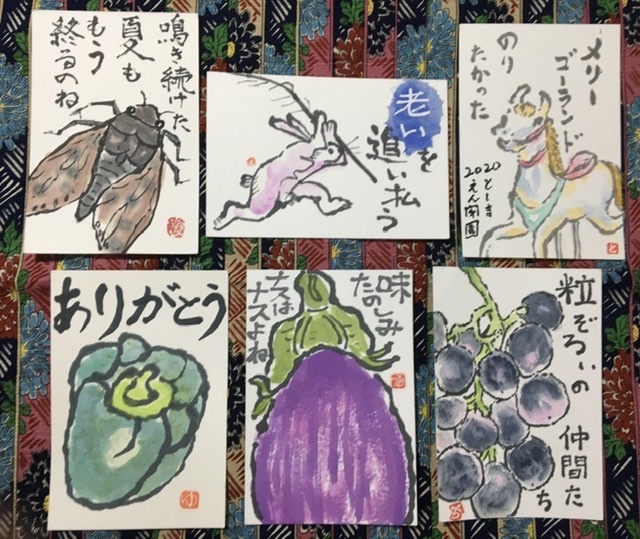 鳴き続けた
夏も
もう
終るのね
老いを
追い払う
メリー
ゴーランド
のり
たかった
2020としま
えん閉園
と
ありがとう
ゆ
味
たのしみ
ナスよね
粒ぞろいの
仲間たち
ち